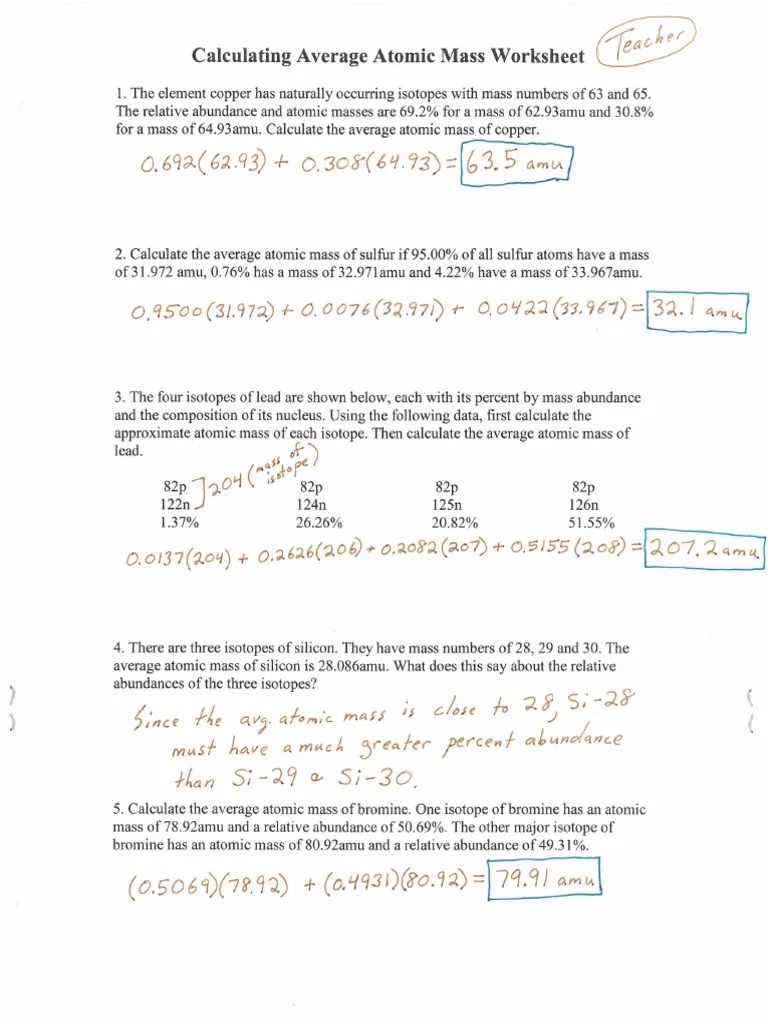 Calculating Average Atomic Mass Worksheet
Teacher
1. The element copper has naturally occurring isotopes with mass numbers of 63 and 65.
The relative abundance and atomic masses are 69.2% for a mass of 62.93amu and 30.8%
for a mass of 64.93amu. Calculate the average atomic mass of copper.
0.692(62.93) + 0.308(64.93) = 63.5 amu
2. Calculate the average atomic mass of sulfur if 95.00% of all sulfur atoms have a mass
of 31.972 amu, 0.76% has a mass of 32.971amu and 4.22% have a mass of 33.967amu.
0.9500(31.972) + 0.0076(32.971) + 0.0422(33.967) = 32.1 amu
3. The four isotopes of lead are shown below, each with its percent by mass abundance
and the composition of its nucleus. Using the following data, first calculate the
approximate atomic mass of each isotope. Then calculate the average atomic mass of
lead.
204 (mass of
isotope)
82p 82p 82p 82p
122n 124n 125n 126n
1.37% 26.26% 20.82% 51.55%
0.0137(204) + 0.2626(206) + 0.2082(207) + 0.5155(208) = 207.2 amu
4. There are three isotopes of silicon. They have mass numbers of 28, 29 and 30. The
average atomic mass of silicon is 28.086amu. What does this say about the relative
abundances of the three isotopes?
Since the avg. atomic mass is close to 28, Si-28
must have a much greater percent abundance
than Si-29 or Si-30.
5. Calculate the average atomic mass of bromine. One isotope of bromine has an atomic
mass of 78.92amu and a relative abundance of 50.69%. The other major isotope of
bromine has an atomic mass of 80.92amu and a relative abundance of 49.31%.
(0.5069)(78.92) + (0.4931)(80.92) = 79.91 amu